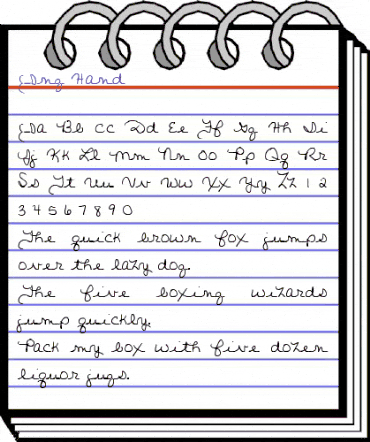 Ang Hand
Aa Bb Cc Dd Ee Ff Gg Hh Ii
Jj Kk Ll Mm Nn Oo Pp Qq Rr
Ss Tt Uu Vv Ww Xx Yy Zz 1 2
3 4 5 6 7 8 9 0
The quick brown fox jumps
over the lazy dog.
The five boxing wizards
jump quickly.
Pack my box with five dozen
liquor jugs.